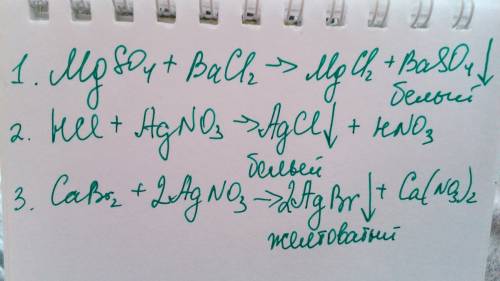 1. MgSO4 + BaCl2 → MgCl2 + BaSO4↓
белый
2. HCl + AgNO3 → AgCl↓ + HNO3
белый
3. CaBr2 + 2AgNO3 → 2AgBr↓ + Ca(NO3)2
желтоватый